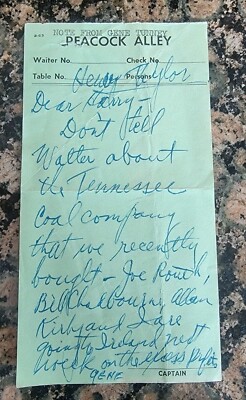 NOTE FROM GENE TUNNEY
PEACOCK ALLEY
Waiter No. Check No.
Table No. Persons
Henry Taylor
Dear Harry-
Don't tell
Walter about
the Tennessee
Coal company
that we recently
bought - Joe Routh,
Bill Chadbourne, Allan
Kirby and I are
going to Ireland next
week on the excess profits
GENE
CAPTAIN